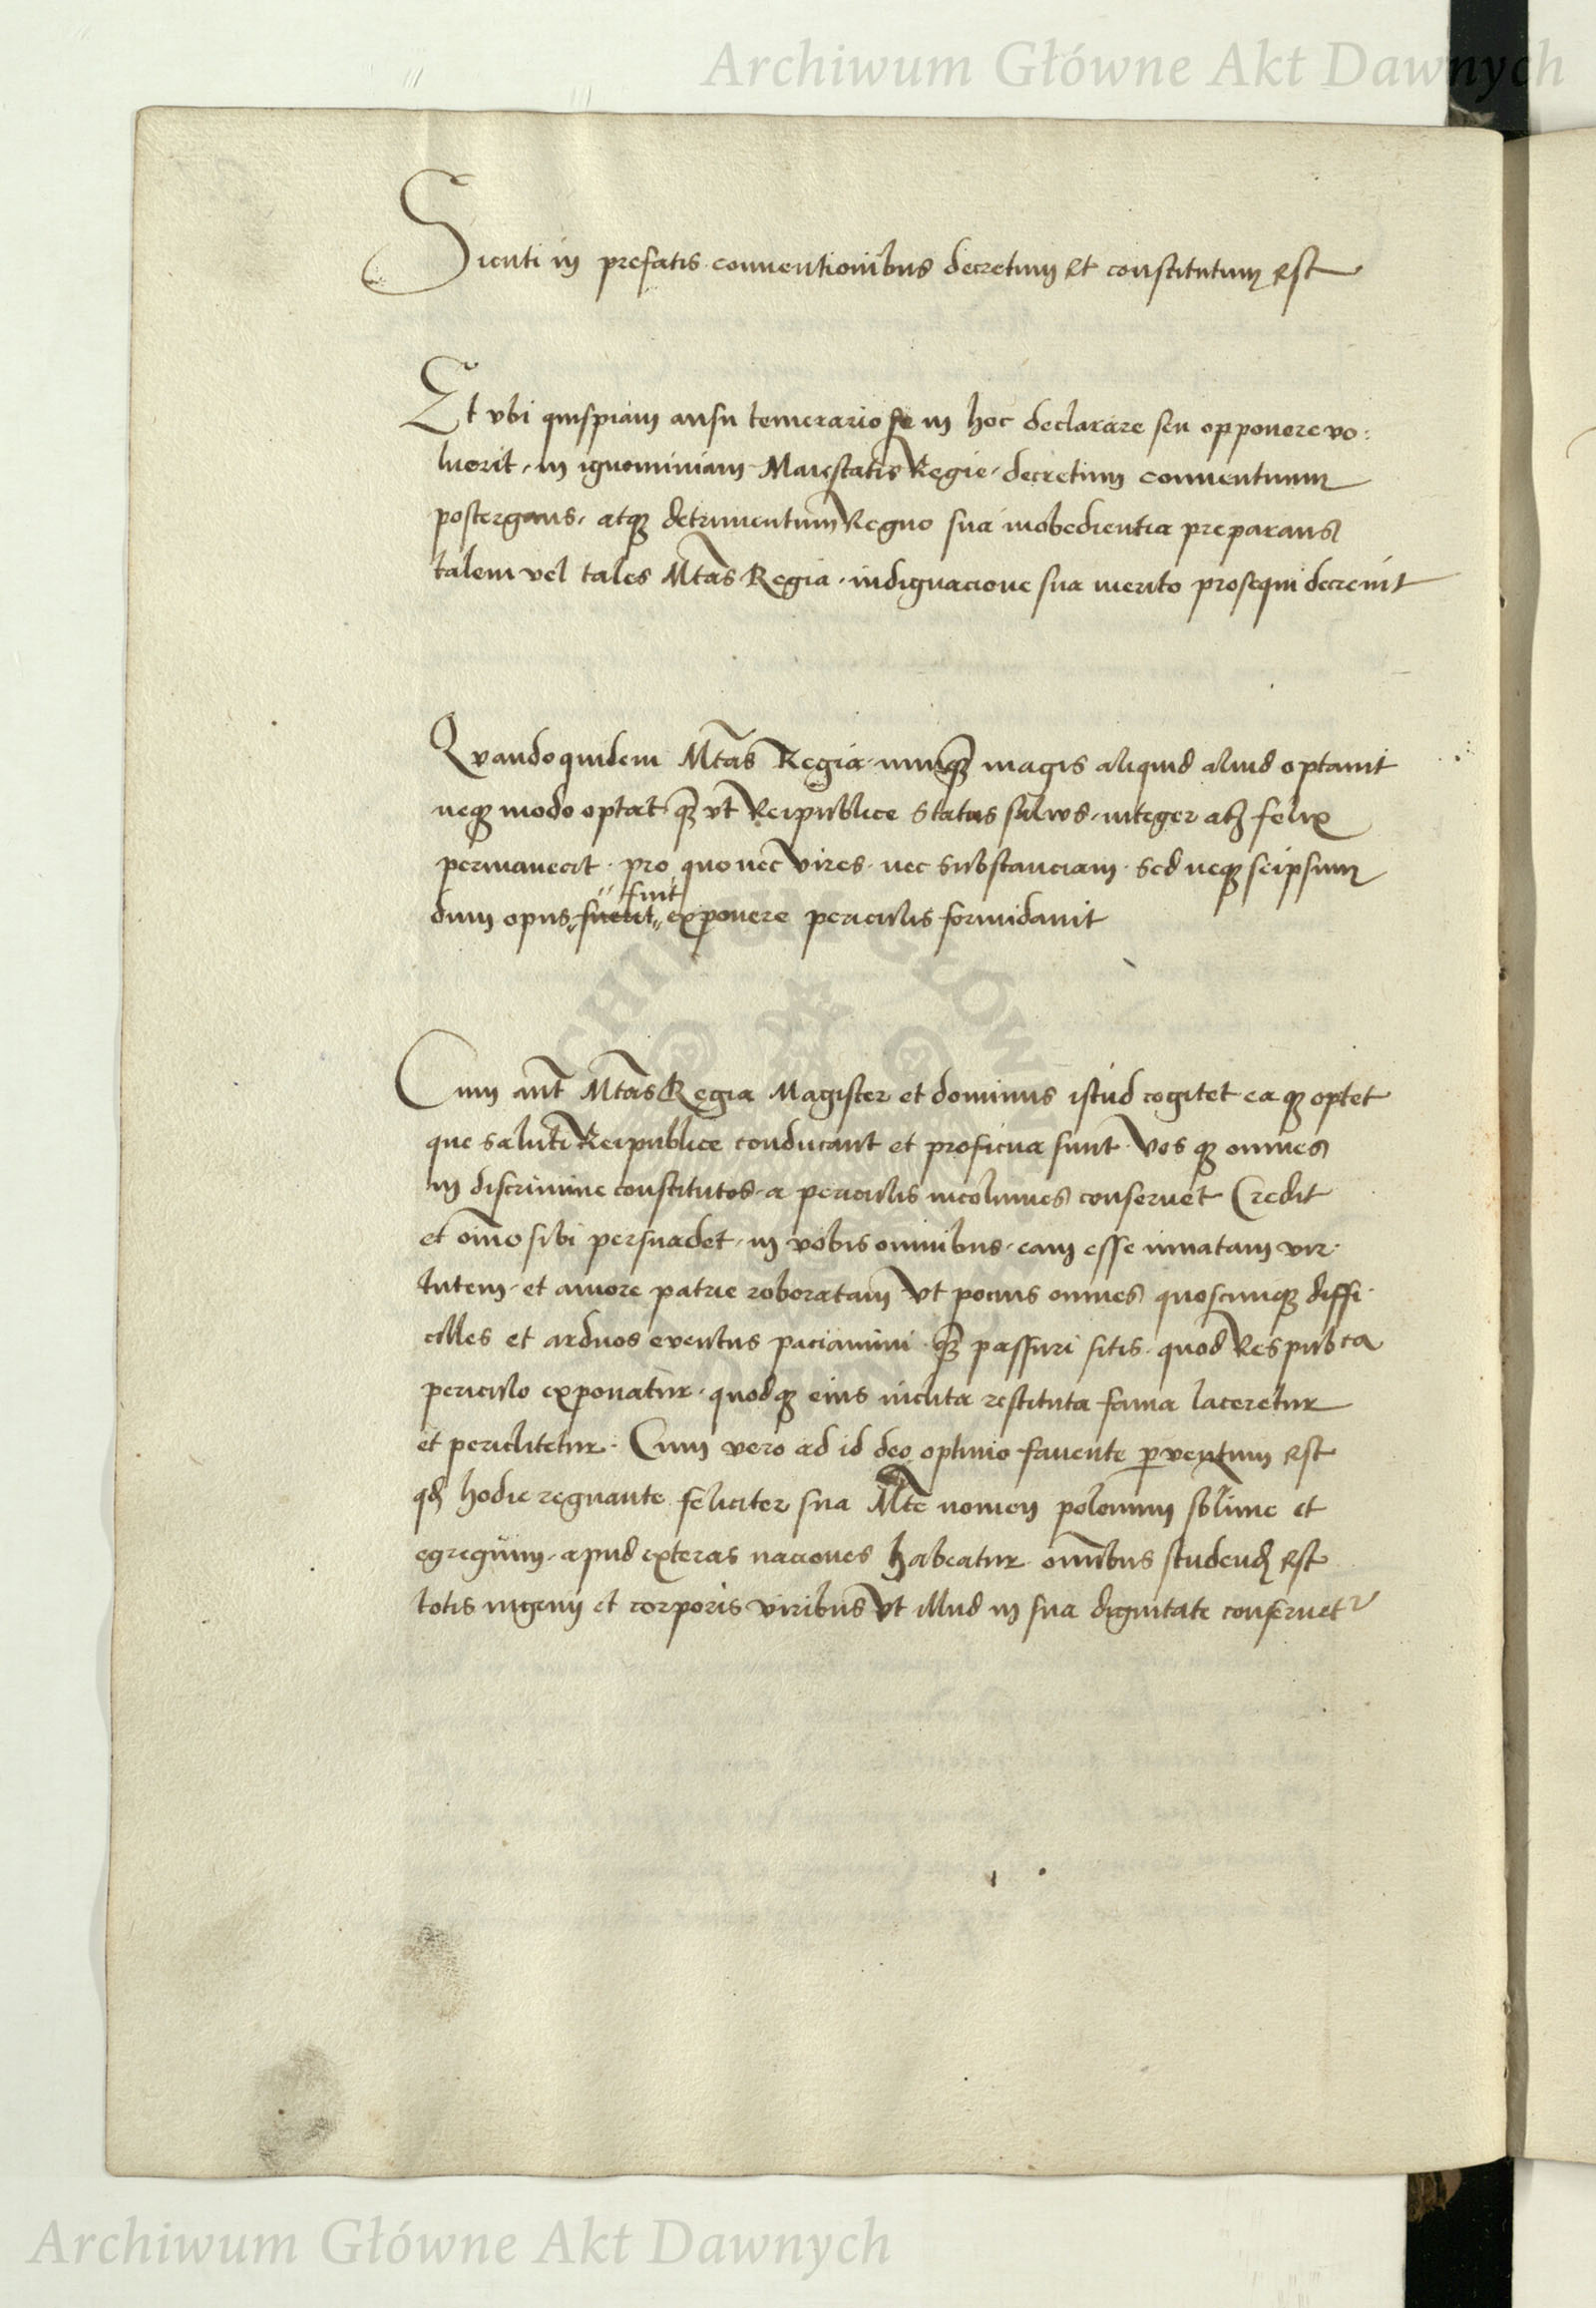 Archiwum Główne Akt Dawnych
Sicuti in prefatis conventionibus decretum et constitutum est
Et ubi quispiam ausu temerario se in hoc declarare seu opponere vo:
luerit, in ignominiam Maiestatis Regie, decretum conventuum
postergans, atque detrimentum Regno sua inobedientia preparans
talem vel tales Mtas Regia, indignacione sua merito prosequi decrevit
Quandoquidem Mtas Regia, nunque magis aliquid aliud optavit
neque modo optat que ut Reipublice Status salvus, integer atque felix
permaneat. pro quo nec vires, nec substanciam. Sed neque seipsum
fuit
dum opus fuerit exponere periculis formidavit
Cum aut Mtas Regia Magister et dominus istud cogitet eaque optet
que saluti Reipublice conducant et proficua sunt. Vosque omnes
in discrimine constitutos, a periculis incolumes conservet Credit
et omo sibi persuadet, in vobis omnibus, eam esse innatam vir-
tutem, et amore patrie roboratam Ut pocius omnes quoscunque diffi-
cilles et arduos eventus paciamini que passuri sitis, quod Respubca
periculo exponatur, quodque eius inclita restituta fama laceretur
et periclitetur. Cum vero ad id deo optimo favente perventum est
qd hodie regnante feliciter sua Mte nomen polonum sblime et
egregium, apud exteras naciones habeatur omibus studend est
totis ingenii et corporis viribus Ut illud in sua dignitate conservet
Archiwum Główne Akt Dawnych